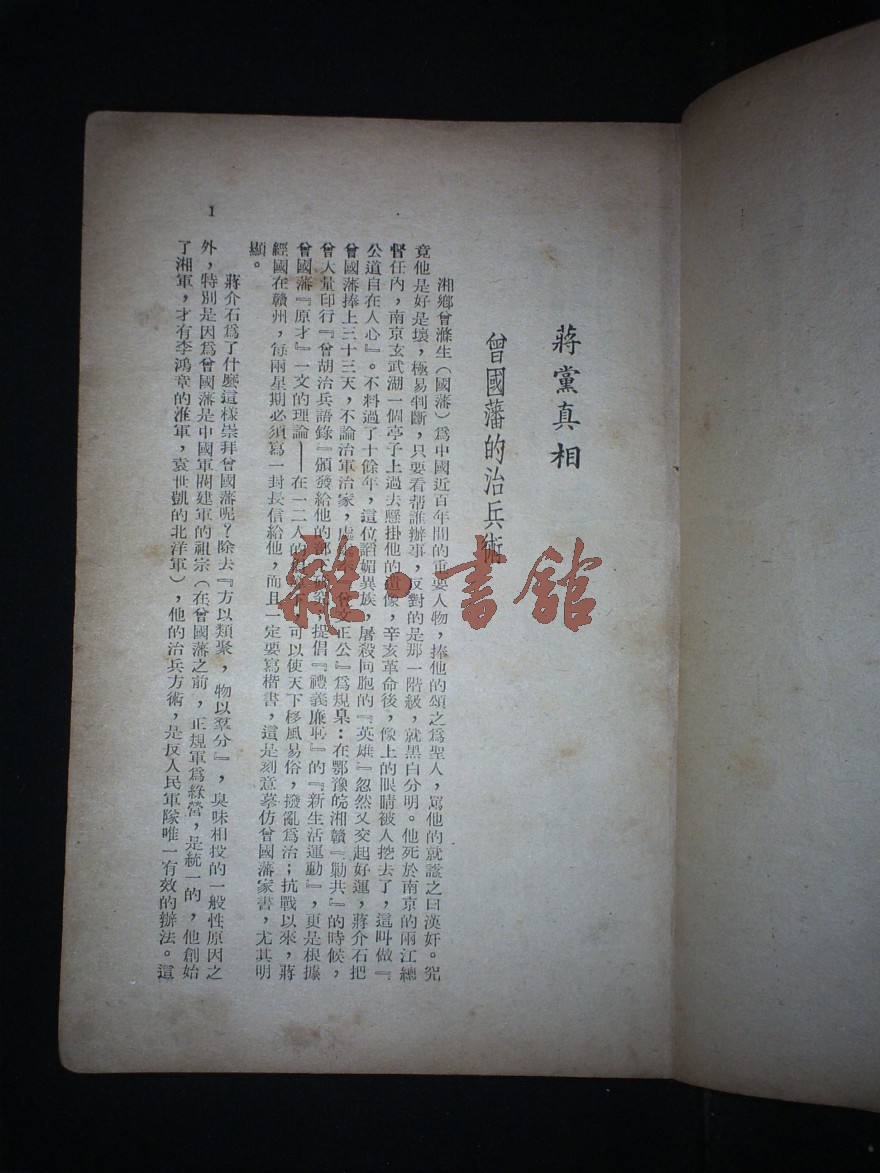 蔣黨真相
曾國藩的治兵術
湘鄉曾滌生（國藩）爲中國近百年間的重要人物，捧他的頌之爲聖人，罵他的就謚之曰漢奸。究
竟他是好是壞，極易判斷，只要看帮誰辦事，反對的是那一階級，就黑白分明。他死於南京的兩江總
督任內，南京玄武湖一個亭子上過去懸掛他的遺像，辛亥革命後，像上的眼睛被人挖去了，這叫做『
公道自在人心』。不料過了十餘年，這位諂媚異族，屠殺同胞的『英雄』忽然又交起好運，蔣介石把
曾國藩捧上三十三天，不論治軍治家，處文正公』爲規臬：在鄂豫皖湘贛『勦共』的時候，
曾大量印行『曾胡治兵語錄』頒發給他的部下研究；提倡『禮義廉恥』的『新生活運動』，更是根據
曾國藩『原才』一文的理論——在一二人的可以使天下移風易俗，撥亂爲治；抗戰以來，蔣
經國在贛州，每兩星期必須寫一封長信給他，而且一定要寫楷書，這是刻意摹仿曾國藩家書，尤其明
顯。
蔣介石爲了什麼這樣崇拜曾國藩呢？除去『方以類聚，物以羣分』，臭味相投的一般性原因之
外，特別是因爲曾國藩是中國軍閥建軍的祖宗（在曾國藩之前，正規軍爲綠營，是統一的，他創始
了湘軍，才有李鴻章的淮軍，袁世凱的北洋軍），他的治兵方術，是反人民軍隊唯一有效的辦法。這
1
雜·書館